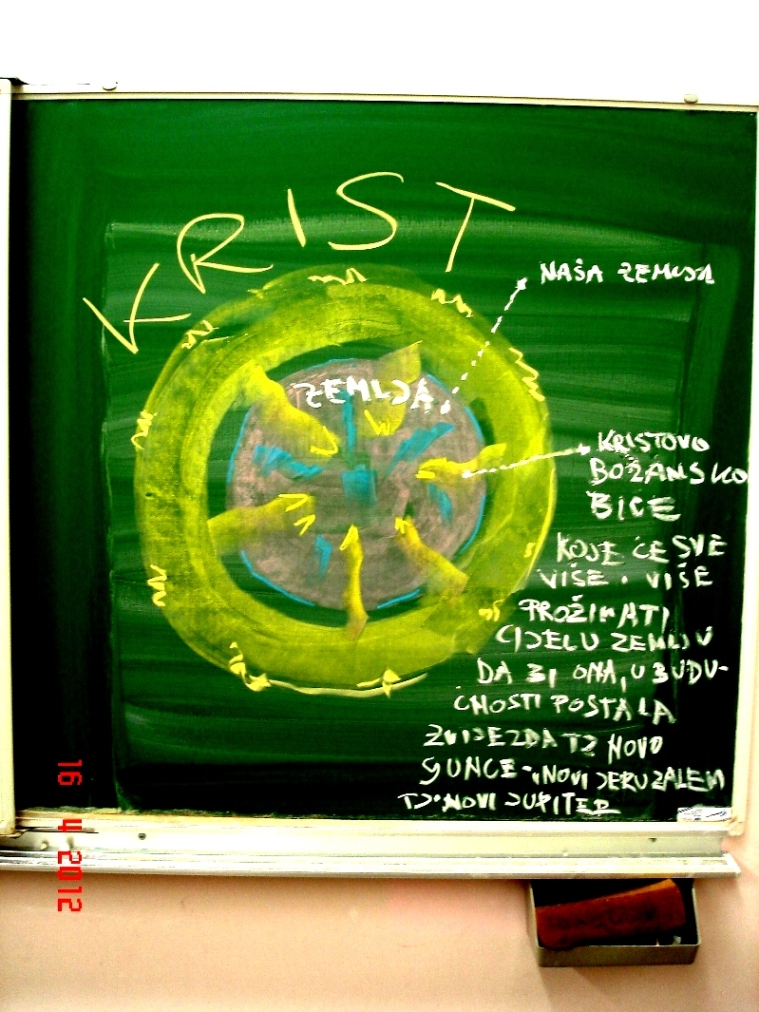 KRIST
NAŠA ZEMLJA
ZEMLJA
KRISTOVO
BOŽANSKO
BIĆE
KOJE ĆE SVE
VIŠE I VIŠE
PROŽIMATI
CIJELU ZEMLJU
DA BI ONA, U BUDU-
ĆNOSTI POSTALA
ZVIJEZDA TJ NOVO
SUNCE - "NOVI JERUZALEM
TJ. NOVI JUPITER
16 4 2012